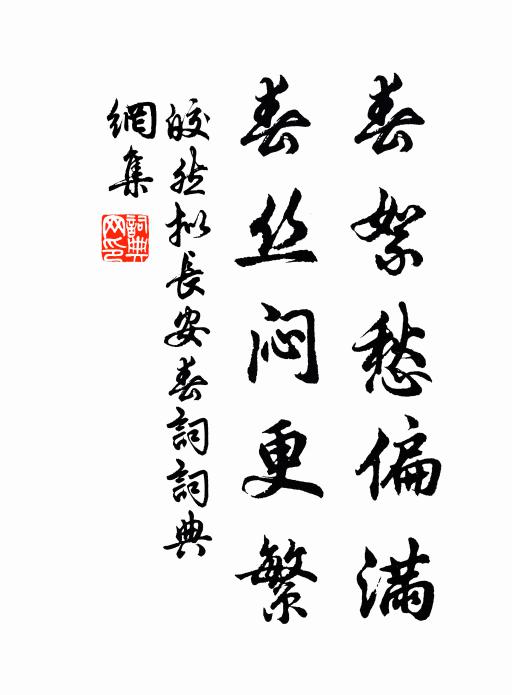 春絮愁偏满
春丝闷更繁
皎然拟長安春詞詞典
網集
詞典
网印